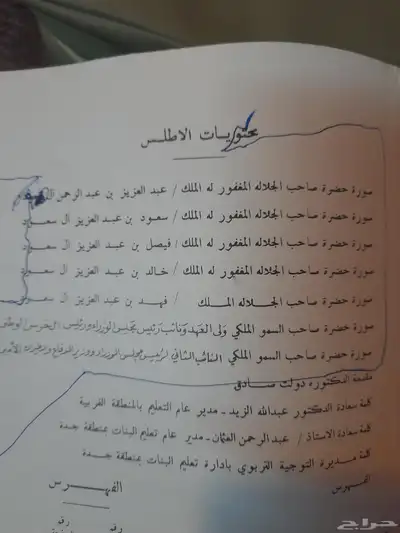 محتويات الاطلس
صورة حضرة صاحب الجلاله المغفور له الملك / عبد العزيز بن عبد الرحمن
صورة حضرة صاحب الجلاله المغفور له الملك / سعود بن عبد العزيز آل سعود
صورة حضرة صاحب الجلاله المغفور له الملك / فيصل بن عبد العزيز آل سعود
صورة حضرة صاحب الجلاله المغفور له الملك / خالد بن عبد العزيز آل سعود
صورة حضرة صاحب الجلاله الملك / فهد بن عبد العزيز آل سعود
صورة حضرة صاحب السمو الملكي ولى العهد ونائب رئيس مجلس الوزراء ورئيس الحرس الوطنى
صورة حضرة صاحب السمو الملكي النائب الثانى لرئيس مجلس الوزراء ووزير الدفاع والطيران
مقدمة الدكتورة دولت صادق
كلمة سعادة الدكتور عبدالله الزيد - مدير عام التعليم بالمنطقة الغربية
كلمة سعادة الاستاذ / عبد الرحمن العثمان - مدير عام تعليم البنات بمنطقة جدة
كلمة مديرة التوجية التربوي بادارة تعليم البنات بمنطقة جدة
الفهرس
الفهرس
رقم رقم
حراج